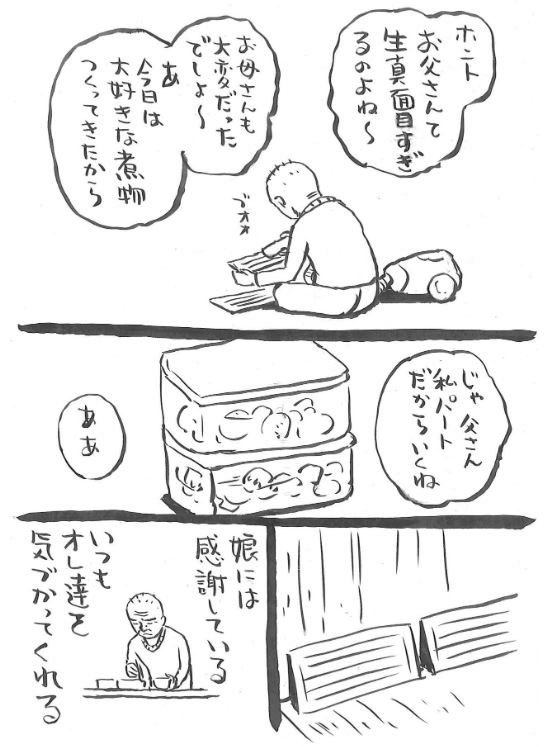 ホント
お父さんて
生真面目すぎ
るのよね〜
お母さんも
大変だった
でしょ〜
あ
今日は
大好きな煮物
つくってきたから
ブオオ
じゃ父さん
私パート
だからいくね
ああ
娘には
感謝している
いつも
オレ達を
気づかってくれる